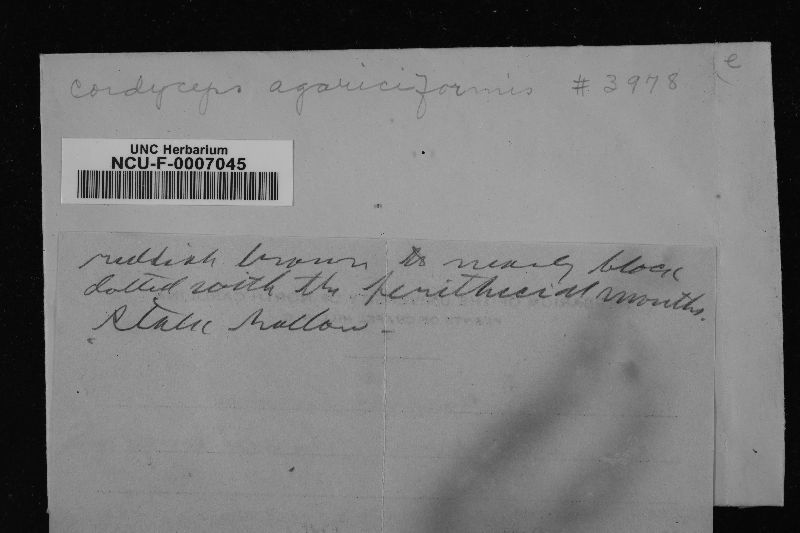 Cordyceps agariciformis # 3978
e
UNC Herbarium
NCU-F-0007045
reddish brown to nearly black
dotted with the perithecial mouths.
Stalk hollow –